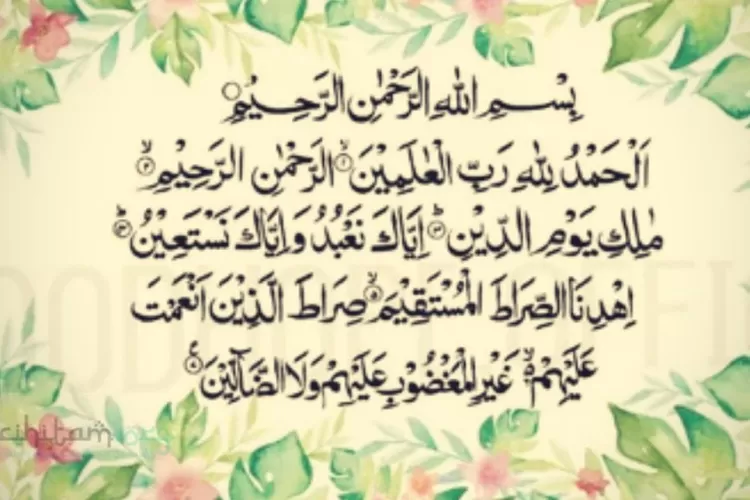 بِسْمِ اللهِ الرَّحْمٰنِ الرَّحِيْمِ
اَلْحَمْدُ لِلّٰهِ رَبِّ الْعٰلَمِيْنَ ١ الرَّحْمٰنِ الرَّحِيْمِ ٢
مٰلِكِ يَوْمِ الدِّيْنِ ٣ اِيَّاكَ نَعْبُدُ وَاِيَّاكَ نَسْتَعِيْنُ ٤
اِهْدِنَا الصِّرَاطَ الْمُسْتَقِيْمَ ٥ صِرَاطَ الَّذِيْنَ اَنْعَمْتَ
عَلَيْهِمْ ٦ غَيْرِ الْمَغْضُوْبِ عَلَيْهِمْ وَلَا الضَّآلِّيْنَ ٧